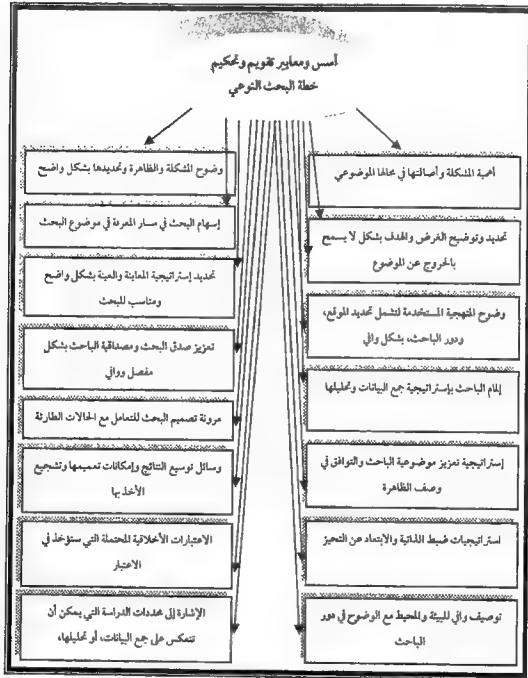 أسس ومعايير تقويم وتحكيم
خطة البحث النوعي
أهمية المشكلة وأصالتها في مجالها الموضوعي
تحديد وتوضيح الغرض والهدف بشكل لا يسمح
بالخروج عن الموضوع
وضوح المنهجية المستخدمة لتشمل تحديد الموقع،
ودور الباحث، بشكل وافي
إلمام الباحث بإستراتيجية جمع البيانات وتحليلها
إستراتيجية تعزيز موضوعية الباحث والتوافق في
وصف الظاهرة
استراتيجيات ضبط الذاتية والابتعاد عن التحيز
توصيف وافي للبيئة والمحيط مع الوضوح في دور
الباحث
وضوح المشكلة والظاهرة وتحديدها بشكل واضح
إسهام البحث في مسار المعرفة في موضوع البحث
تحديد إستراتيجية المعاينة والعينة بشكل واضح
ومناسب للبحث
تعزيز صدق البحث ومصداقية الباحث بشكل
مفصل ووافي
مرونة تصميم البحث للتعامل مع الحالات الطارئة
وسائل توسيع النتائج وإمكانات تعميمها وتشجيع
الأخذ بها
الاعتبارات الأخلاقية المحتملة التي ستؤخذ في
الاعتبار
الإشارة إلى محددات الدراسة التي يمكن أن
تنعكس على جمع البيانات، أو تحليلها،